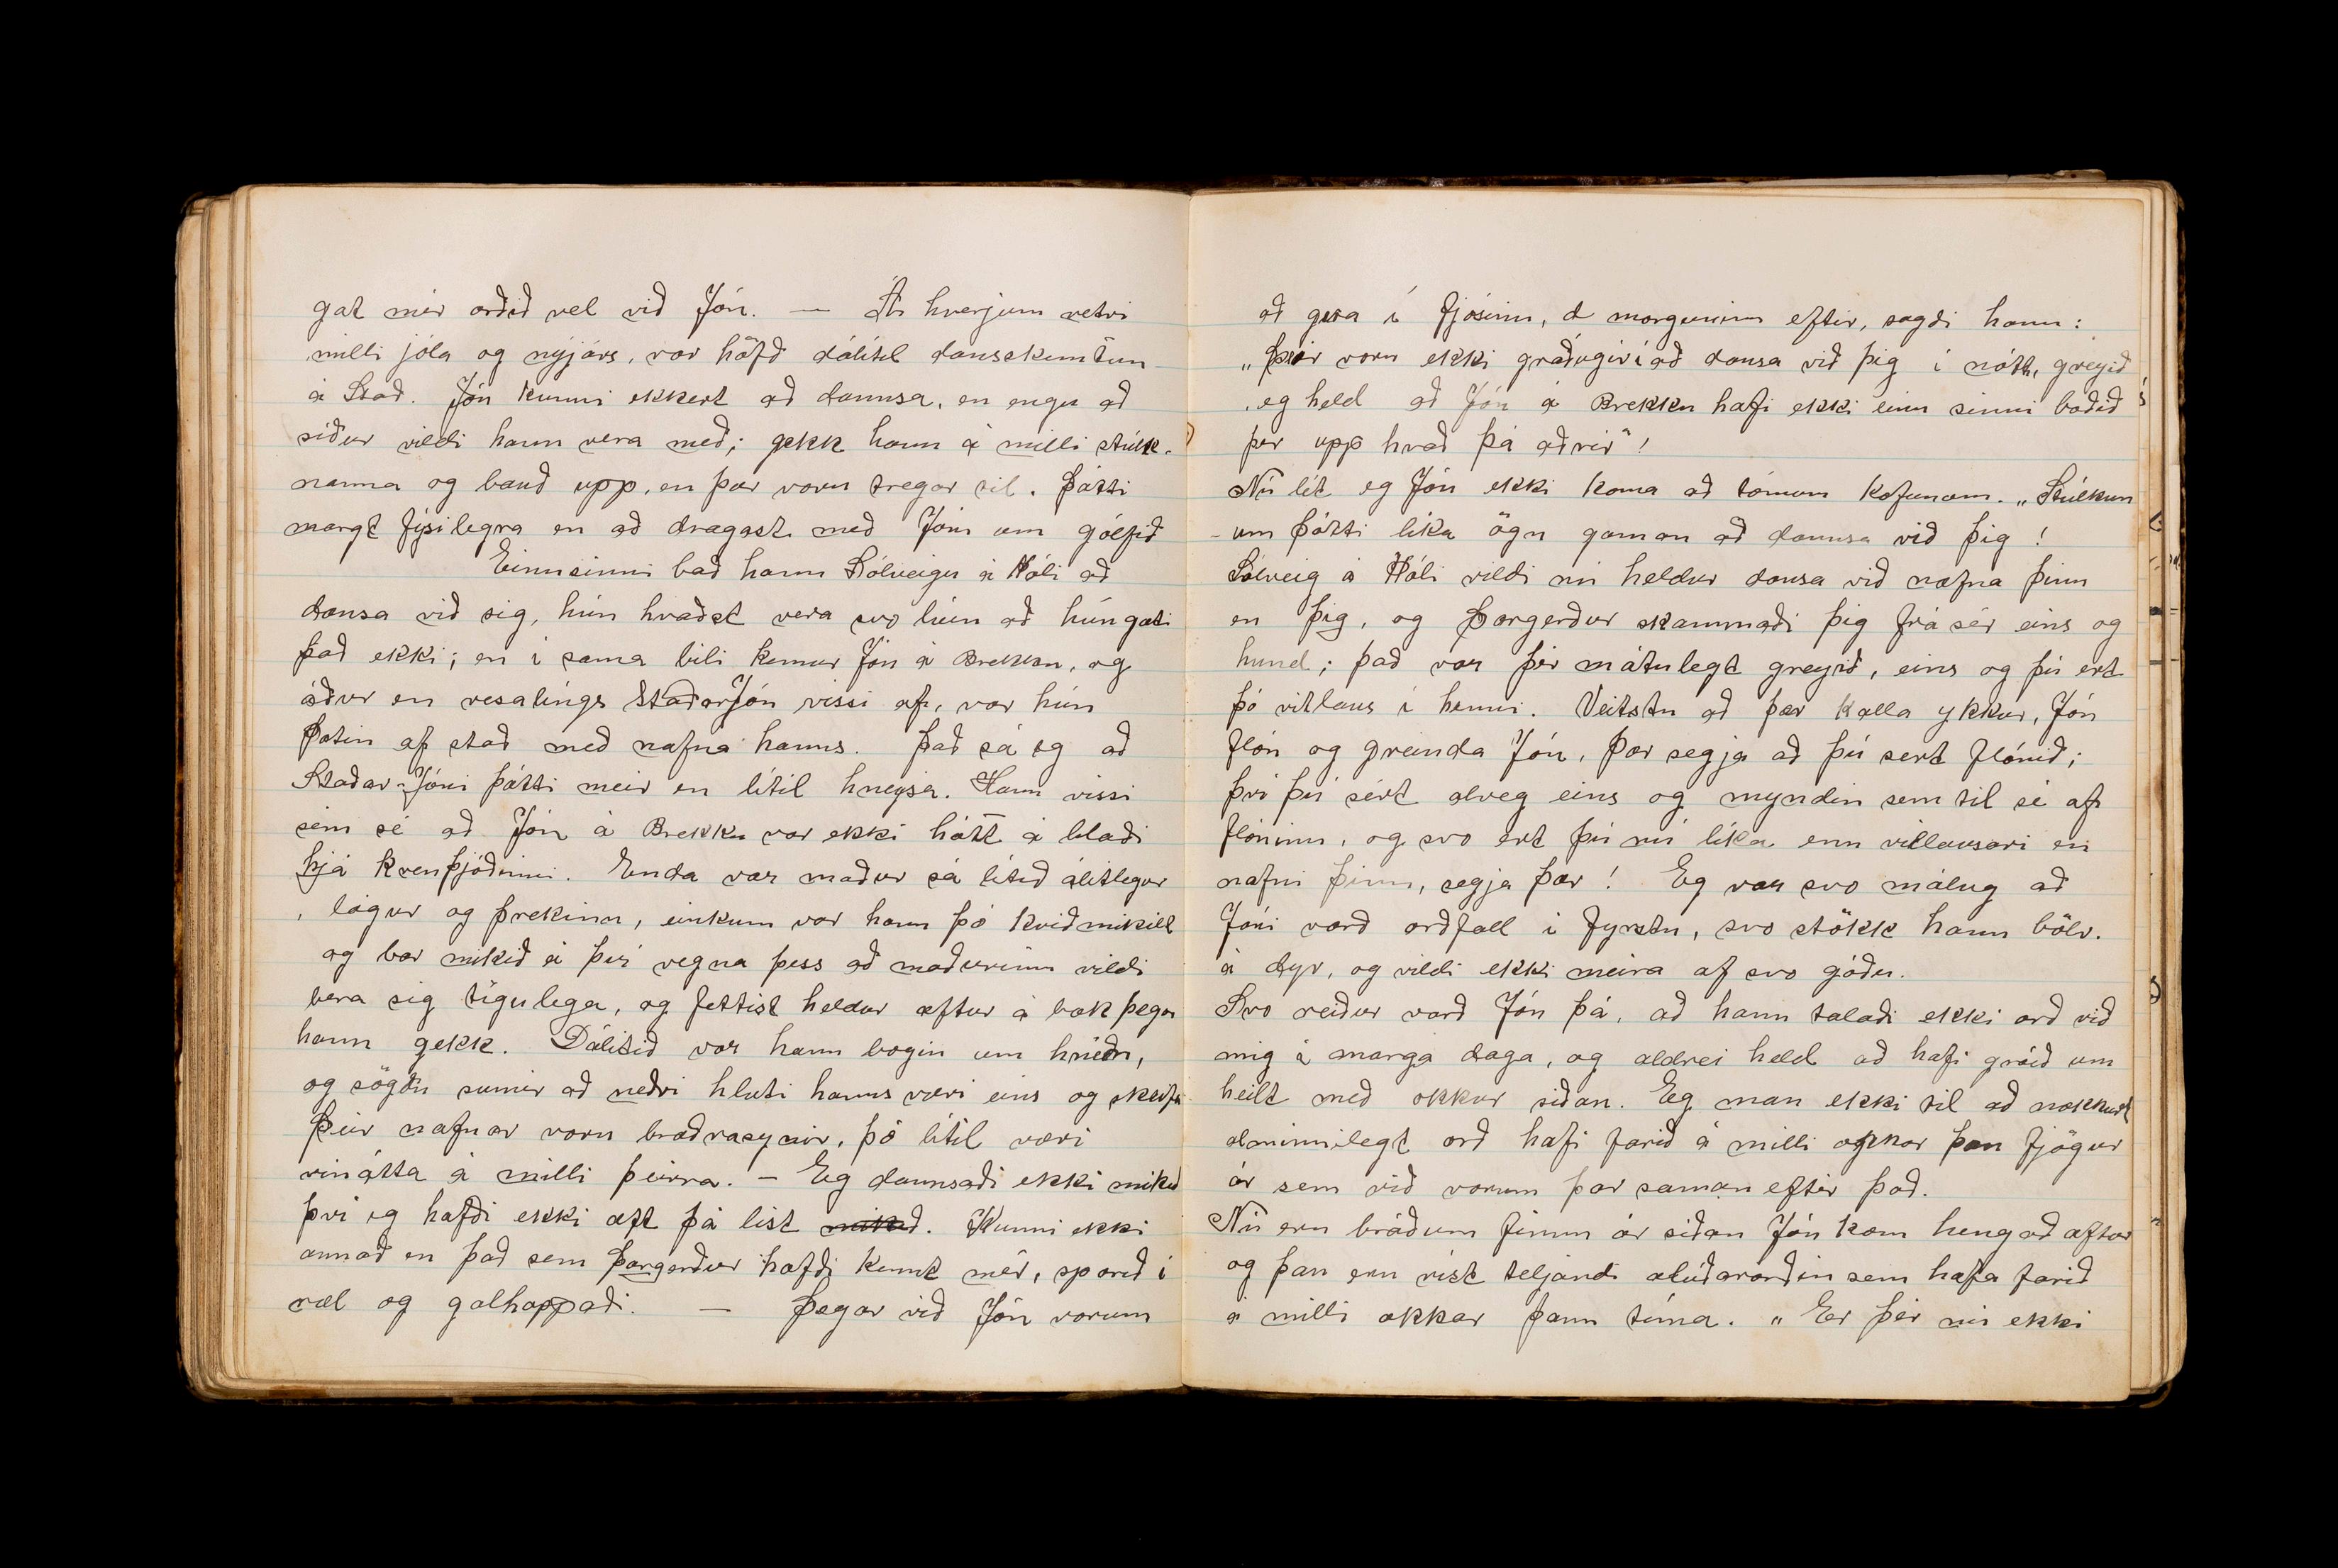 gat mér orðið vel við Jón. — Á hverjum vetri
milli jóla og nýjárs, var höfð dálítil dansskemtun
á Stað. Jón kunni ekkert að dannsa, en engu að
síður vildi hann vera með; gekk hann á milli stúlk-
nanna og bauð upp, en þær voru tregar til. Þótti
margt fýsilegra en að dragast með Jóni um gólfið
Einusinni bað hann Sólveigu á Hóli að
dansa við sig, hún hvaðst vera svo lúin að hún gæti
það ekki; en í sama bili kemur Jón á Brekku, og
áður en vesalings StaðarJón vissi af, var hún
þotin af stað með nafna hanns. Það sá eg að
Staðar-Jóni þótti meir en lítil hneysa. Hann vissi
sem sé að Jón á Brekku var ekki hátt á blaði
hjá kvenþjóðinni. Enda var maður sá lítið álitlegur
, lágur og þrekinn, einkum var hann þó kviðmikill
og bar mikið á því vegna þess að maðurinn vildi
bera sig tígulega, og fettist heldur aftur á bak þegar
hann gekk. Dálítið var hann bogin um hnéðn,
og sögðu sumir að neðri hluti hanns væri eins og skeifa
Þeir nafnar voru bræðrasynir, þó lítil væri
vinátta á milli þeirra. — Eg dannsaði ekki mikið
því eg hafði ekki æft þá list mikið. Kunni ekki
annað en það sem Þorgerður hafði kennt mér, sporið í
ræl og galhoppaði. — Þegar við Jón vorum
að gera í fjósinu, á morguninn eftir, sagði hann:
„Þær voru ekki gráðugir í að dansa við þig í nótt, greyið
, eg held að Jón á Brekku hafi ekki einu sinni boðið
þer upp hvað þá aðrir"!
Nú lét eg Jón ekki koma að tómum kofunum. „Stúlkun
-um þótti líka ögn gaman að dannsa við þig!
Sólveig á Hóli vildi nú heldur dansa við nafna þinn
en þig, og Þorgerður skammaði þig frá sér eins og
hund; það var þér mátulegt greyið, eins og þú ert
þó vitlaus í henni. Veitstu að þær kalla ykkur, Jón
flón og greinda Jón, þær segja að þú sert flónið;
því þú sért alveg eins og myndin sem til sé af
flóninu, og svo ert þú nú líka enn vitlausari en
nafni þinn, segja þær! Eg var svo málug að
Jóni varð orðfall í fyrstu, svo stökk hann bölv.
á dyr, og vildi ekki meira af svo góðu.
Svo reiður varð Jón þá, að hann talaði ekki orð við
mig á marga daga, og aldrei held að hafi gróið um
heilt með okkur síðan. Eg man ekki til að nokkurt
almimilegt orð hafi farið á milli okkar þau fjögur
ár sem við vorum þar saman eftir það.
Nú eru bráðum fimm ár síðan Jón kom hengað aftur
og þau eru víst teljandi alúðarorðin sem hafa farið
á milli okkar þann tíma. „Er þér nú ekki